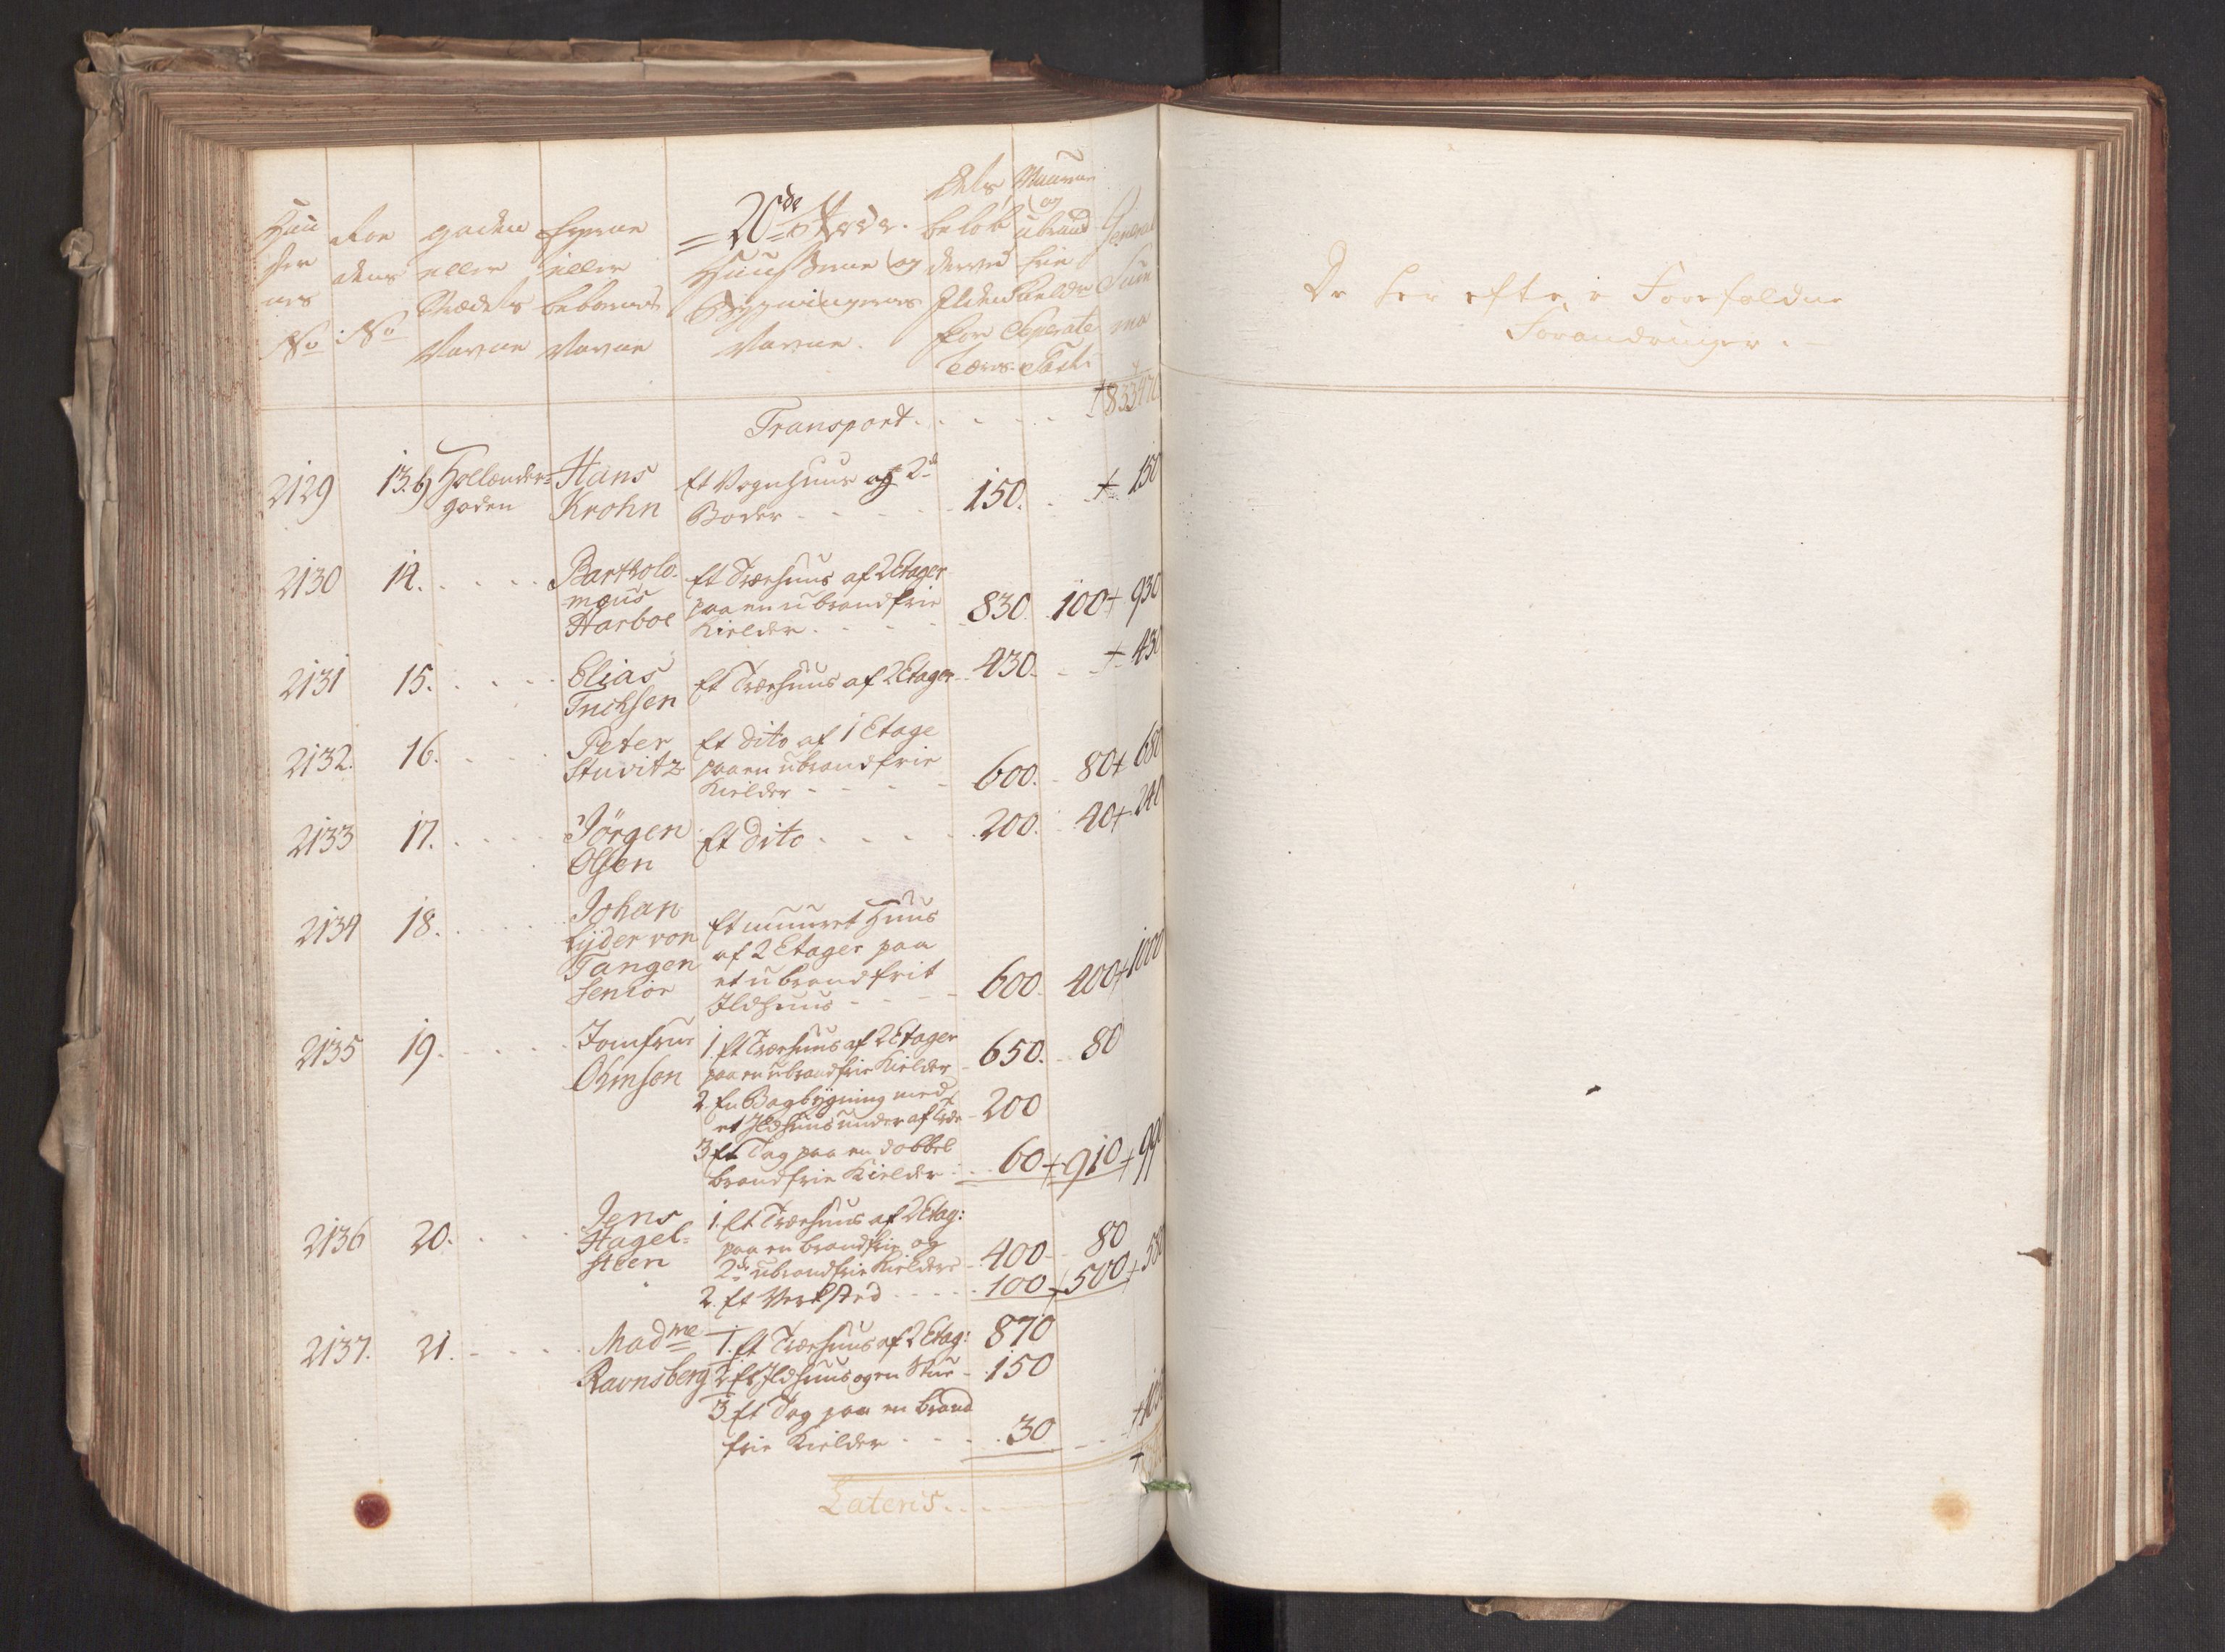 20de Rode.
Huu
ser
nes
No
Rodens No
gaden
eller
Strædets
Navne
Eyerne
eller
beboernes
Navne
Huusene og
Bygningernes
Navne.
Muurene
og
ubrand
frie
Kielder
Seperate
Taxt
General
Sum
ma
Transport . . . . .
2129 13.b Hollænder= Hans Et Vognhuus og 2de
gaden Krohn Boder - - - - 150. . + 150
2130 14. . . . . Bartholo- Et Træehuus af 2 Etager
mæus paa en ubrandfrie
Harboe Kielder . . . . 830. 100 + 930
2131 15. . . . . Elias Et Træehuus af 2 Etager - 430. - + 430
Friehsen
2132. 16. . . . Peter Et dito af 1 Etage
Stuvitz paa en ubrandfrie
Kielder - - - - 600. 80 + 680
2133 17. . . . . Jörgen Et dito . . . . 200. 40 + 240
Olsen
2134 18. . . . . Johan Et muuret Huus
Lyder von af 2 Etager paa
Tangen et ubrandfrit
Senior Ildhuus - - - - 600. 400 + 1000
2135 19. . . . . Jomfrue 1. Et Træehuus af 2 Etager
Ohmsen paa en ubrandfrie Kielder - 650. 80
2. En Bagbygning med
et Ildhuus under af Træe - 200
3 Et Tag paa en dobbel
brandfrie Kielder - 60 + 910 + 990
2136 20. . . . . Jens 1. Et Træehuus af 2 Etag:
Hagel= paa en brandfrie og
steen 2de ubrandfrie Kieldere - 400 - 80
2. Et Verksted - - - - 100 + 500 + 580
2137. 21. - - - . Madme 1. Et Træehuus af 2 Etag: 870
Ravnsberg 2 Et Ildhuus og en Stue - 150
3 Et Tag paa en brand
frie Kielder - - - . 30
Lateris . . . .
De her efter Forefaldne
Forandringer. -